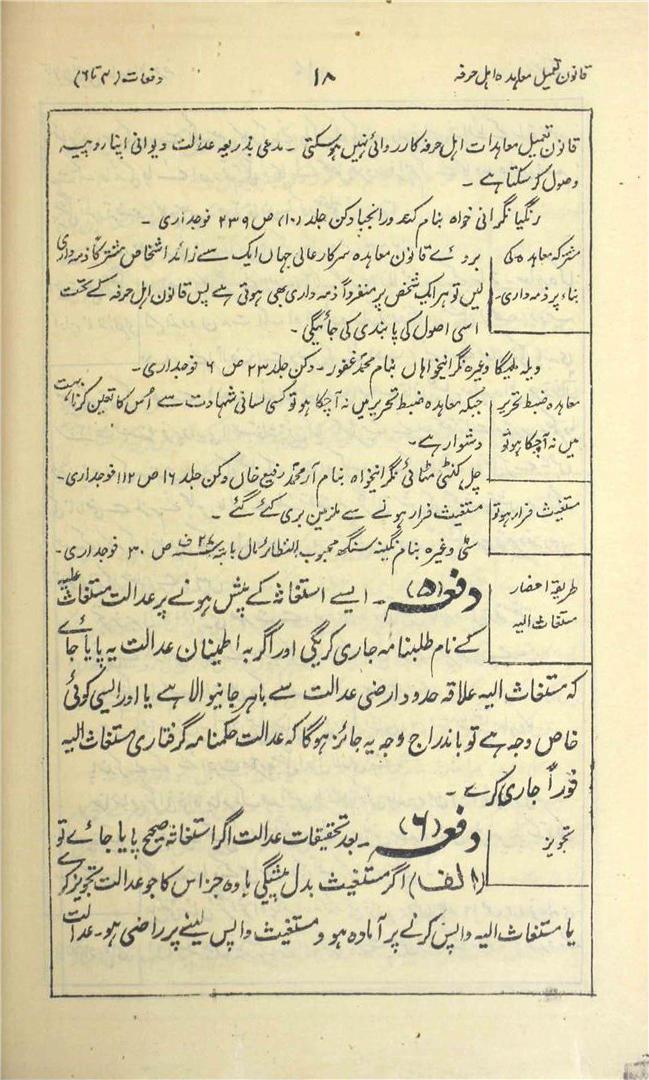 قانون تعمیل معاہدہ اہل حرفہ
۱۸
دفعات (۴ تا ۶)
قانون تعمیل معاہدات اہل حرفہ کارروائی نہیں ہوسکتی ۔ مدعی بذریعہ عدالت دیوانی اپنا روپیہ
وصول کرسکتا ہے ۔
رنگیا نگرانی خواہ بنام دکن جلد (۱۰) ص ۲۳۹ فوجداری ۔
مشترکہ معاہدہ کی
بناء پر ذمہ داری۔
بروئے قانون معاہدہ سرکار عالی جہاں ایک سے زائد اشخاص مشترکاً ذمہ داری
لیں تو ہر ایک شخص پر منفرداً ذمہ داری بھی ہوتی ہے پس قانون اہل حرفہ کے تحت
اسی اصول کی پابندی کی جائیگی ۔
وغیرہ نگرانیخواہاں بنام محمد غفور ۔ دکن جلد ۲۳ ص ۶ فوجداری ۔
معاہدہ ضبط تحریر
میں نہ آچکا ہو تو
جبکہ معاہدہ ضبط تحریر میں نہ آچکا ہو تو کسی لسانی شہادت سے اُس کا تعین کرنا بہت
دشوار ہے ۔
نگرانیخواہ بنام آر محمد رفیع خاں دکن جلد ۱۶ ص ۱۱۲ فوجداری ۔
مستغیث فرار ہو تو
مستغیث فرار ہونے سے ملزمین بری کئے گئے ۔
وغیرہ بنام نگینہ سنگھ محبوب النظائر ص ۳۰ فوجداری ۔
طریقہ احضار
مستغاث الیہ
دفعہ (۵) ۔ ایسے استغاثہ کے پیش ہونے پر عدالت مستغاث علیہ
کے نام طلبنامہ جاری کریگی اور اگر بہ اطمینان عدالت یہ پایا جائے
کہ مستغاث الیہ علاقہ حدود ارضی عدالت سے باہر جانیوالا ہے یا اور ایسی کوئی
خاص وجہ ہے تو باندراج وجہ یہ جائز ہوگا کہ عدالت حکمنامہ گرفتاری مستغاث الیہ
فوراً جاری کرے ۔
تجویز
دفعہ (۶) ۔ بعد تحقیقات عدالت اگر استغاثہ صحیح پایا جائے تو
(الف) اگر مستغیث بدل پیشگی یا وہ جز اس کا جو عدالت تجویز کرے
یا مستغاث الیہ واپس کرنے پر آمادہ ہو و مستغیث واپس لینے پر راضی ہو۔ عدالت